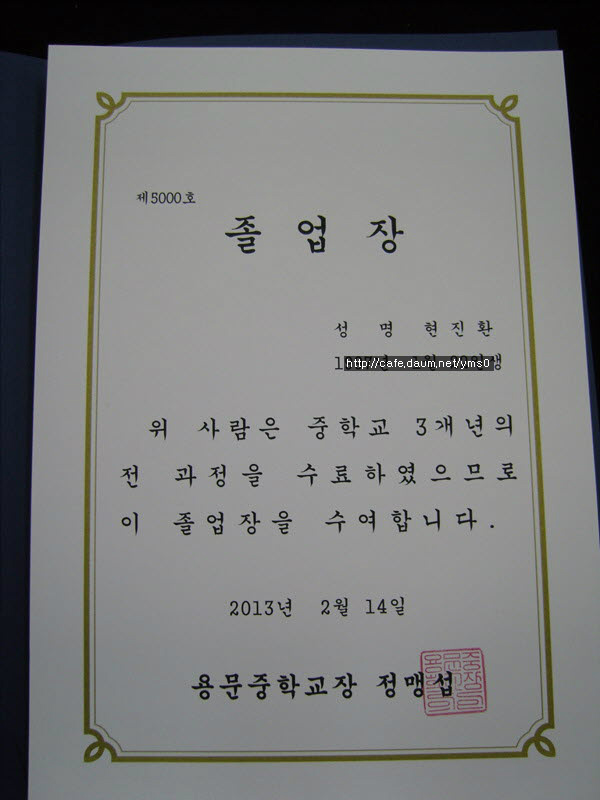 제5000호
졸 업 장
성 명 현진환
http://cafe.daum.net/yms0
생
위 사람은 중학교 3개년의
전 과정을 수료하였으므로
이 졸업장을 수여합니다.
2013년 2월 14일
용문중학교장 정맹섭